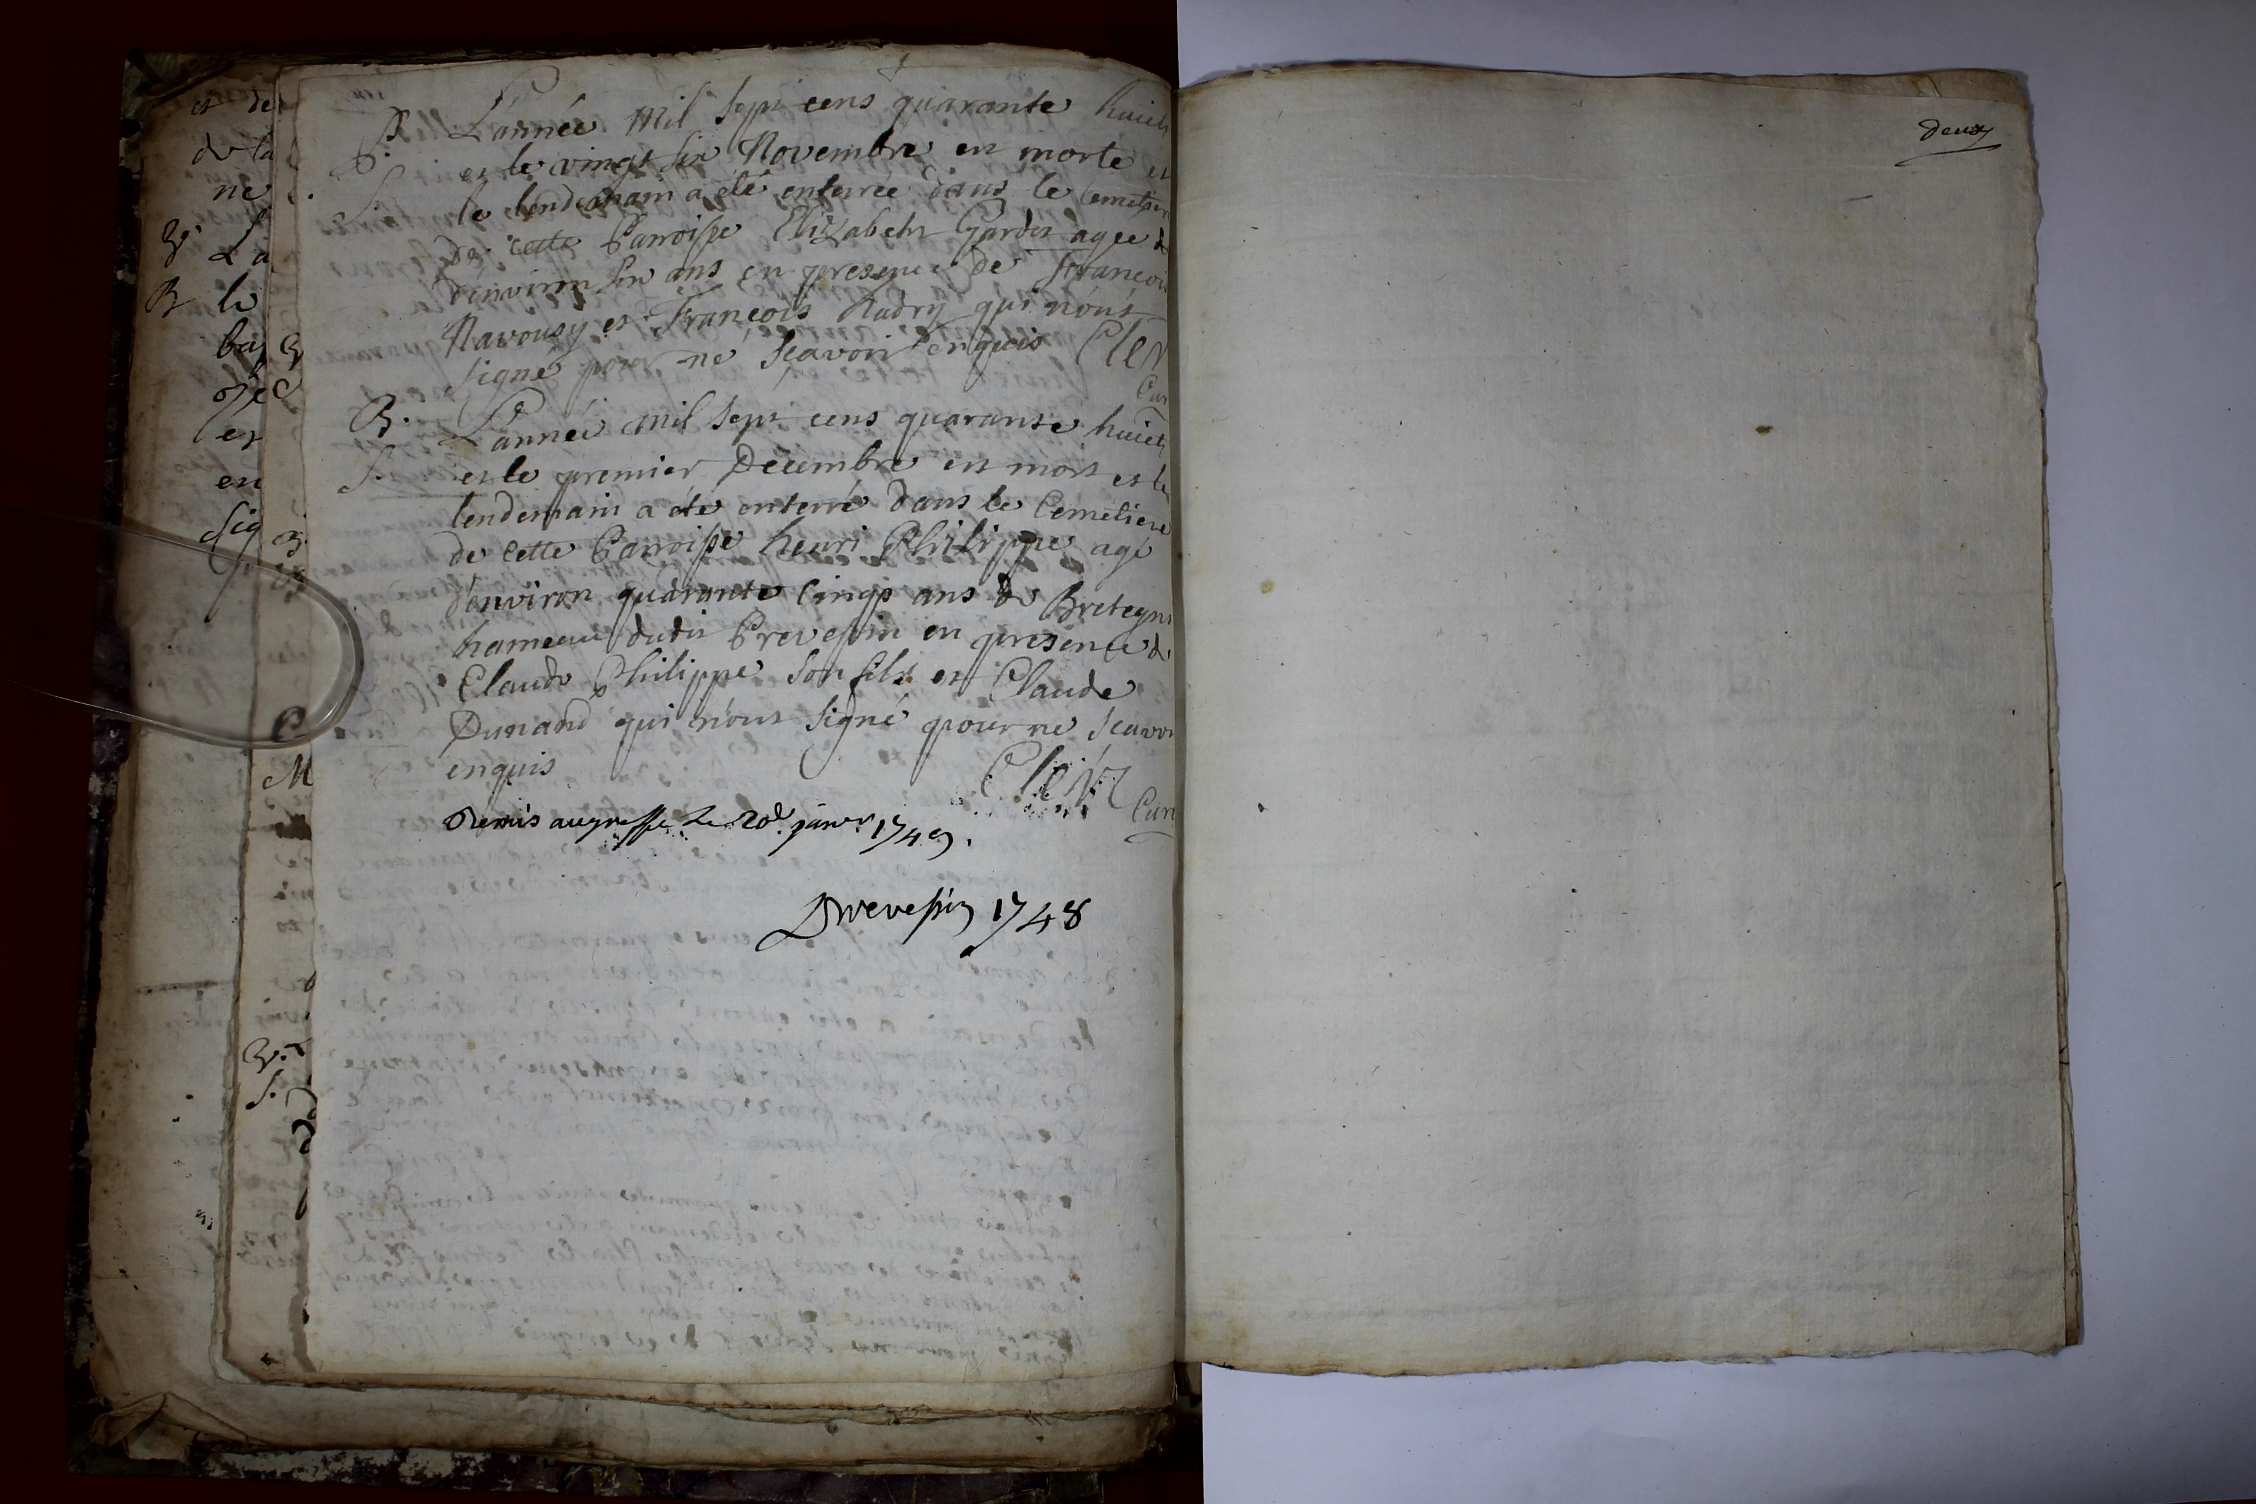 L'année mil sept cens quarante huict
et le vingt six Novembre est morte et
le lendemain a été enterrée dans le Cemetier
De cette Parroisse Elizabeth Gardet agee de
d'environ six ans en presence de François
Navousy et François Nadry qui n'ont
signé pour ne scavoir enquis Cler
Cur
B. L'année mil sept cens quarante huict
S. et le premier Decembre est mort et le
lendemain a été enterré dans le Cemetiere
de cette Parroisse henri Philippe agé
d'environ quarante Cinqs ans de Bretegni
hameau dudit Prevessin en presence de
Claude Philippe son fils et Claude
Dunand qui n'ont signé pour ne scavoi
enquis
Clerz Curé
Remis au greffe Le 20e janer 1749.
Prevessin 1748
deux
et de
de la
ne
La
B le
bap
en
sig
M